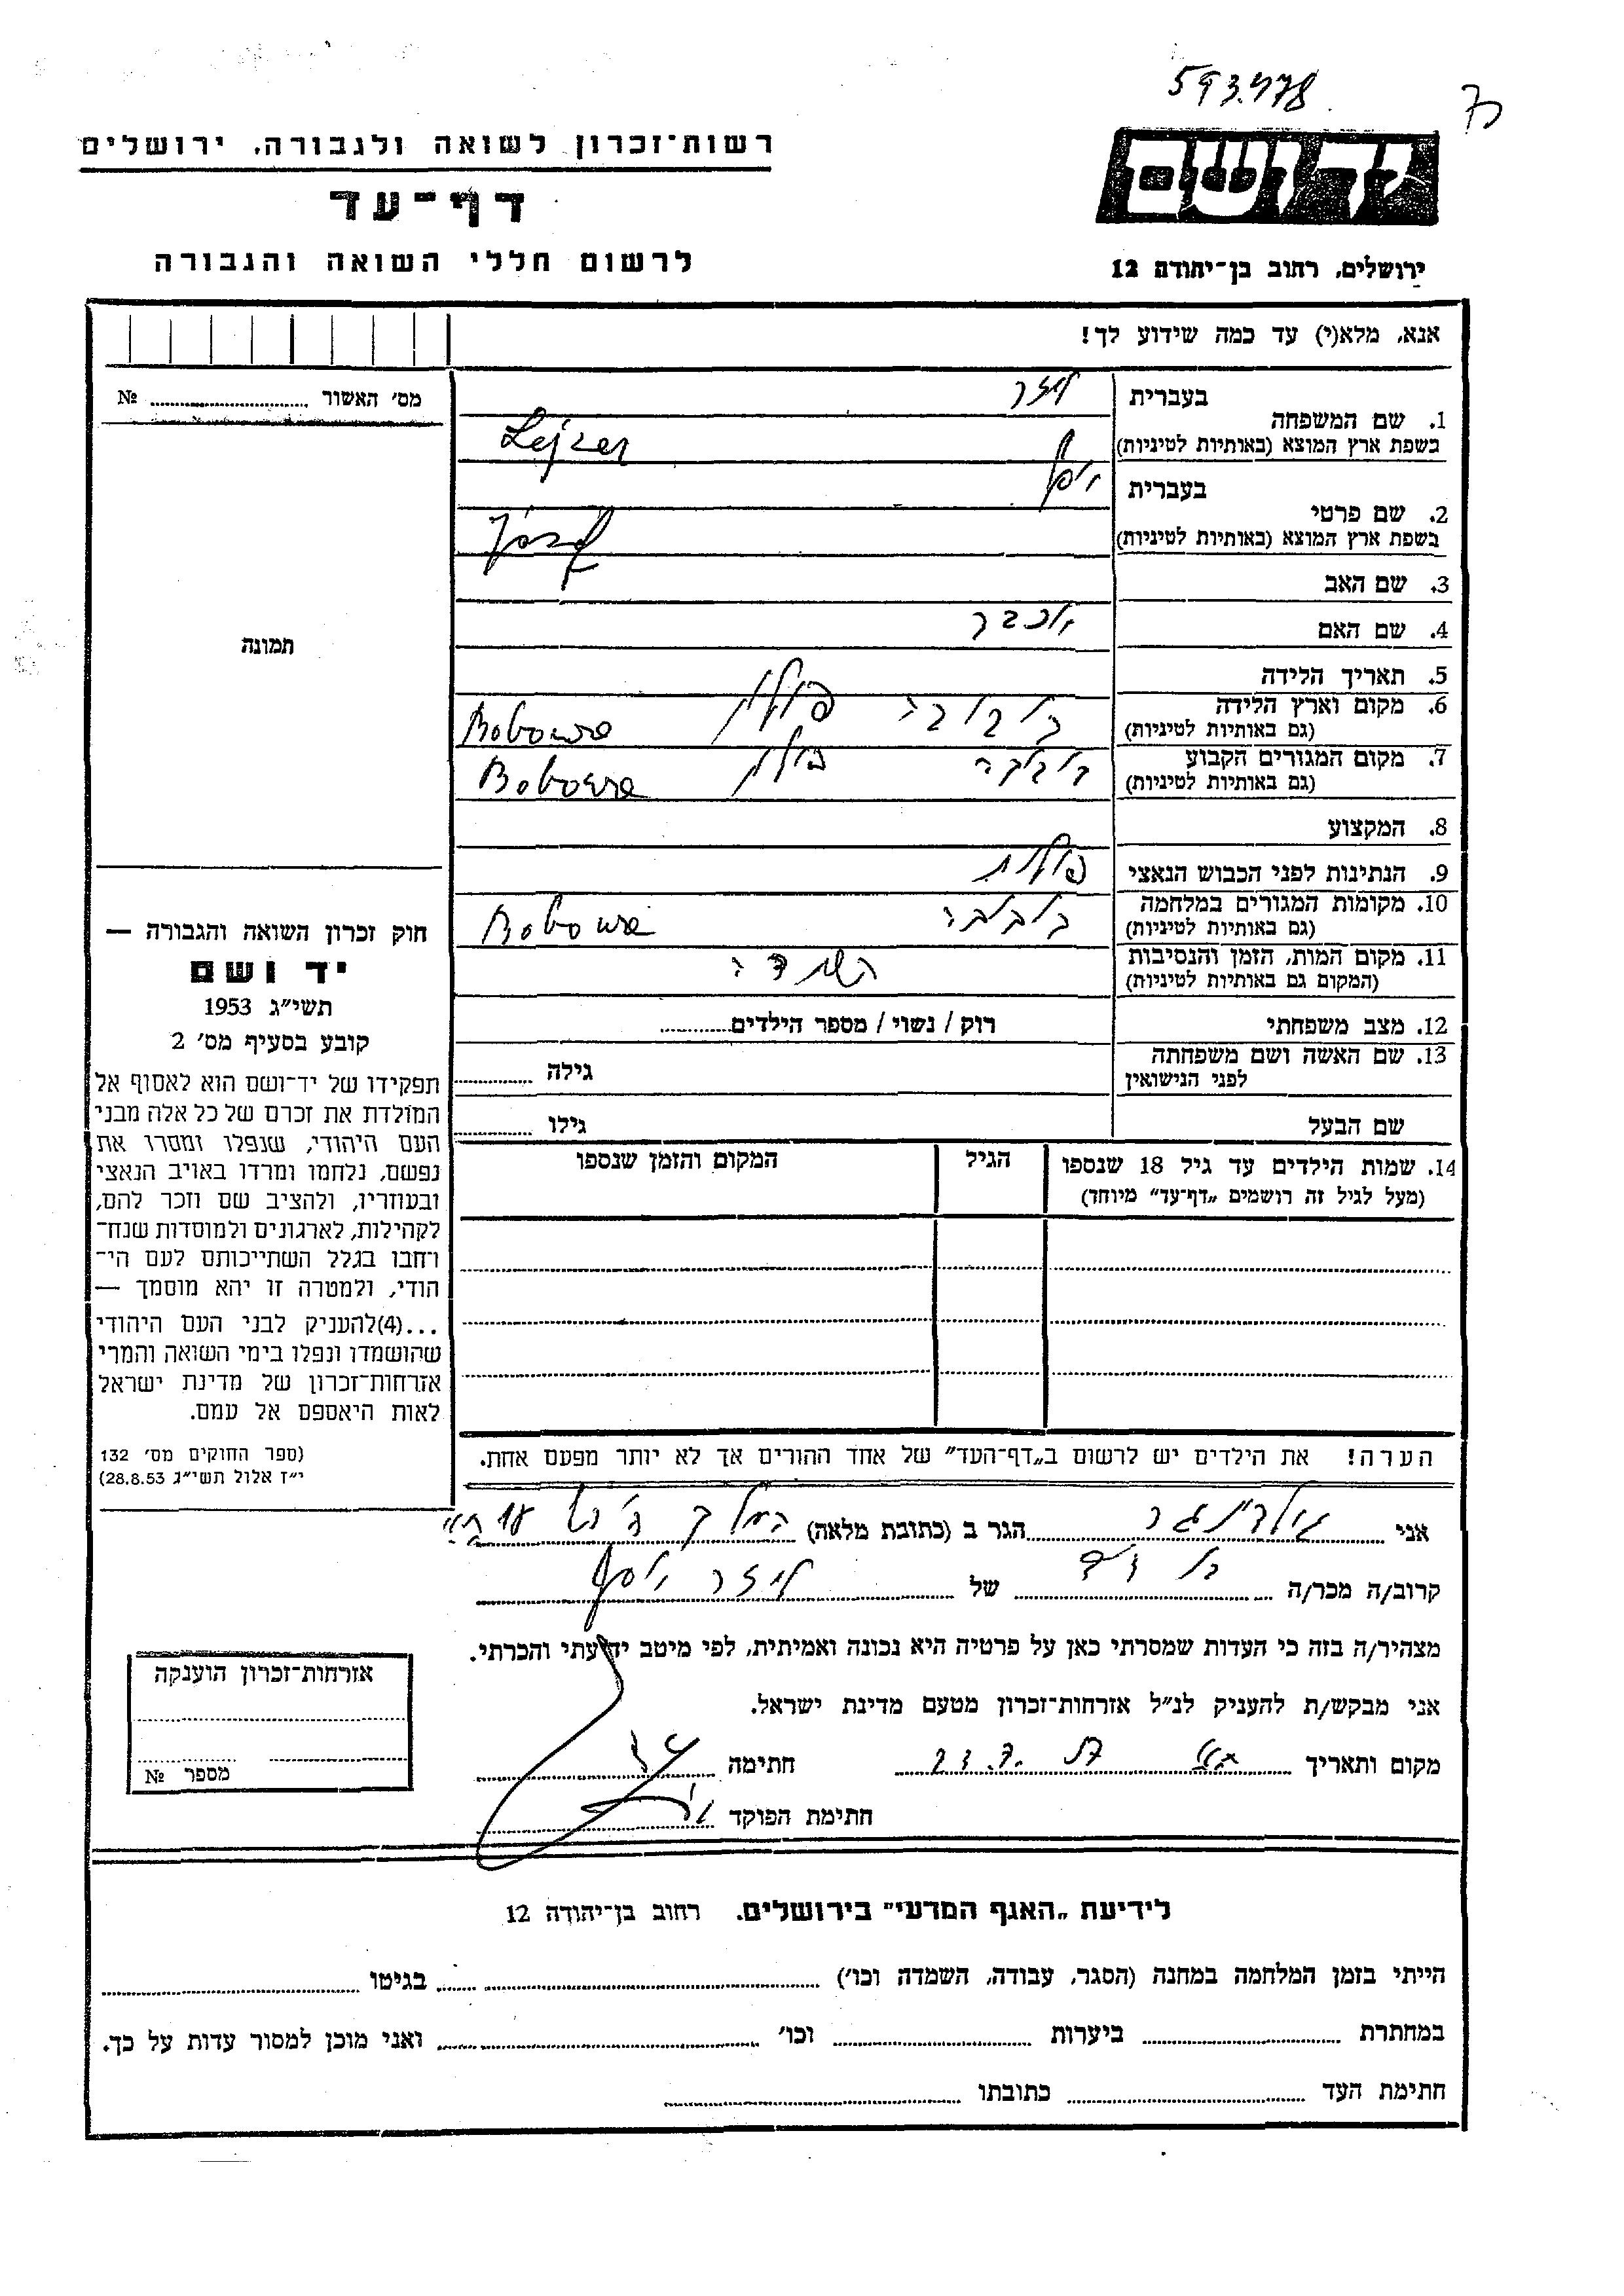 593.478
רשות־זכרון לשואה ולגבורה, ירושלים
יד ושם
דף־עד
לרשום חללי השואה והגבורה
ירושלים, רחוב בן־יהודה 12
אנא, מלא(י) עד כמה שידוע לך!
מס׳ האשור № 
1. שם המשפחה
בעברית
לייזר
בשפת ארץ המוצא (באותיות לטיניות)
Lejzer
2. שם פרטי
בעברית
יוסף
בשפת ארץ המוצא (באותיות לטיניות)
Józef
3. שם האב
4. שם האם
יוכבד
5. תאריך הלידה
6. מקום וארץ הלידה
(גם באותיות לטיניות)
בובובה פולין Bobowa
7. מקום המגורים הקבוע
(גם באותיות לטיניות)
בובובה פולין Bobowa
8. המקצוע
9. הנתינות לפני הכבוש הנאצי
פולנית
10. מקומות המגורים במלחמה
(גם באותיות לטיניות)
בובובה Bobowa
11. מקום המות, הזמן והנסיבות
(המקום גם באותיות לטיניות)
השמדה
12. מצב משפחתי
רוק / נשוי / מספר הילדים
13. שם האשה ושם משפחתה
לפני הנישואין
גילה
שם הבעל
גילו
14. שמות הילדים עד גיל 18 שנספו
(מעל לגיל זה רושמים „דף־עד״ מיוחד)
הגיל
המקום והזמן שנספו
תמונה
חוק זכרון השואה והגבורה —
יד ושם
תשי״ג 1953
קובע בסעיף מס׳ 2
תפקידו של יד־ושם הוא לאסוף אל
המולדת את זכרם של כל אלה מבני
העם היהודי, שנפלו ומסרו את
נפשם, נלחמו ומרדו באויב הנאצי
ובעוזריו, ולהציב שם וזכר להם,
לקהילות, לארגונים ולמוסדות שנח־
רחבו בגלל השתייכותם לעם הי־
הודי, ולמטרה זו יהא מוסמך —
...(4)להעניק לבני העם היהודי
שהושמדו ונפלו בימי השואה והמרי
אזרחות־זכרון של מדינת ישראל
לאות היאספם אל עמם.
(ספר החוקים מס׳ 132
י״ז אלול תשי״ג 28.8.53)
הערה! את הילדים יש לרשום ב„דף־העד״ של אחד ההורים אך לא יותר מפעם אחת.
אני הגר ב (כתובת מלאה)
קרוב/ה מכר/ה בן דוד של לייזר יוסף
מצהיר/ה בזה כי העדות שמסרתי כאן על פרטיה היא נכונה ואמיתית, לפי מיטב ידיעתי והכרתי.
אני מבקש/ת להעניק לנ״ל אזרחות־זכרון מטעם מדינת ישראל.
מקום ותאריך חתימה
חתימת הפוקד
אזרחות־זכרון הוענקה
מספר №
לידיעת „האגף המדעי״ בירושלים. רחוב בן־יהודה 12
הייתי בזמן המלחמה במחנה (הסגר, עבודה, השמדה וכו׳) בגיטו
במחתרת ביערות וכו׳ ואני מוכן למסור עדות על כך.
חתימת העד כתובתו